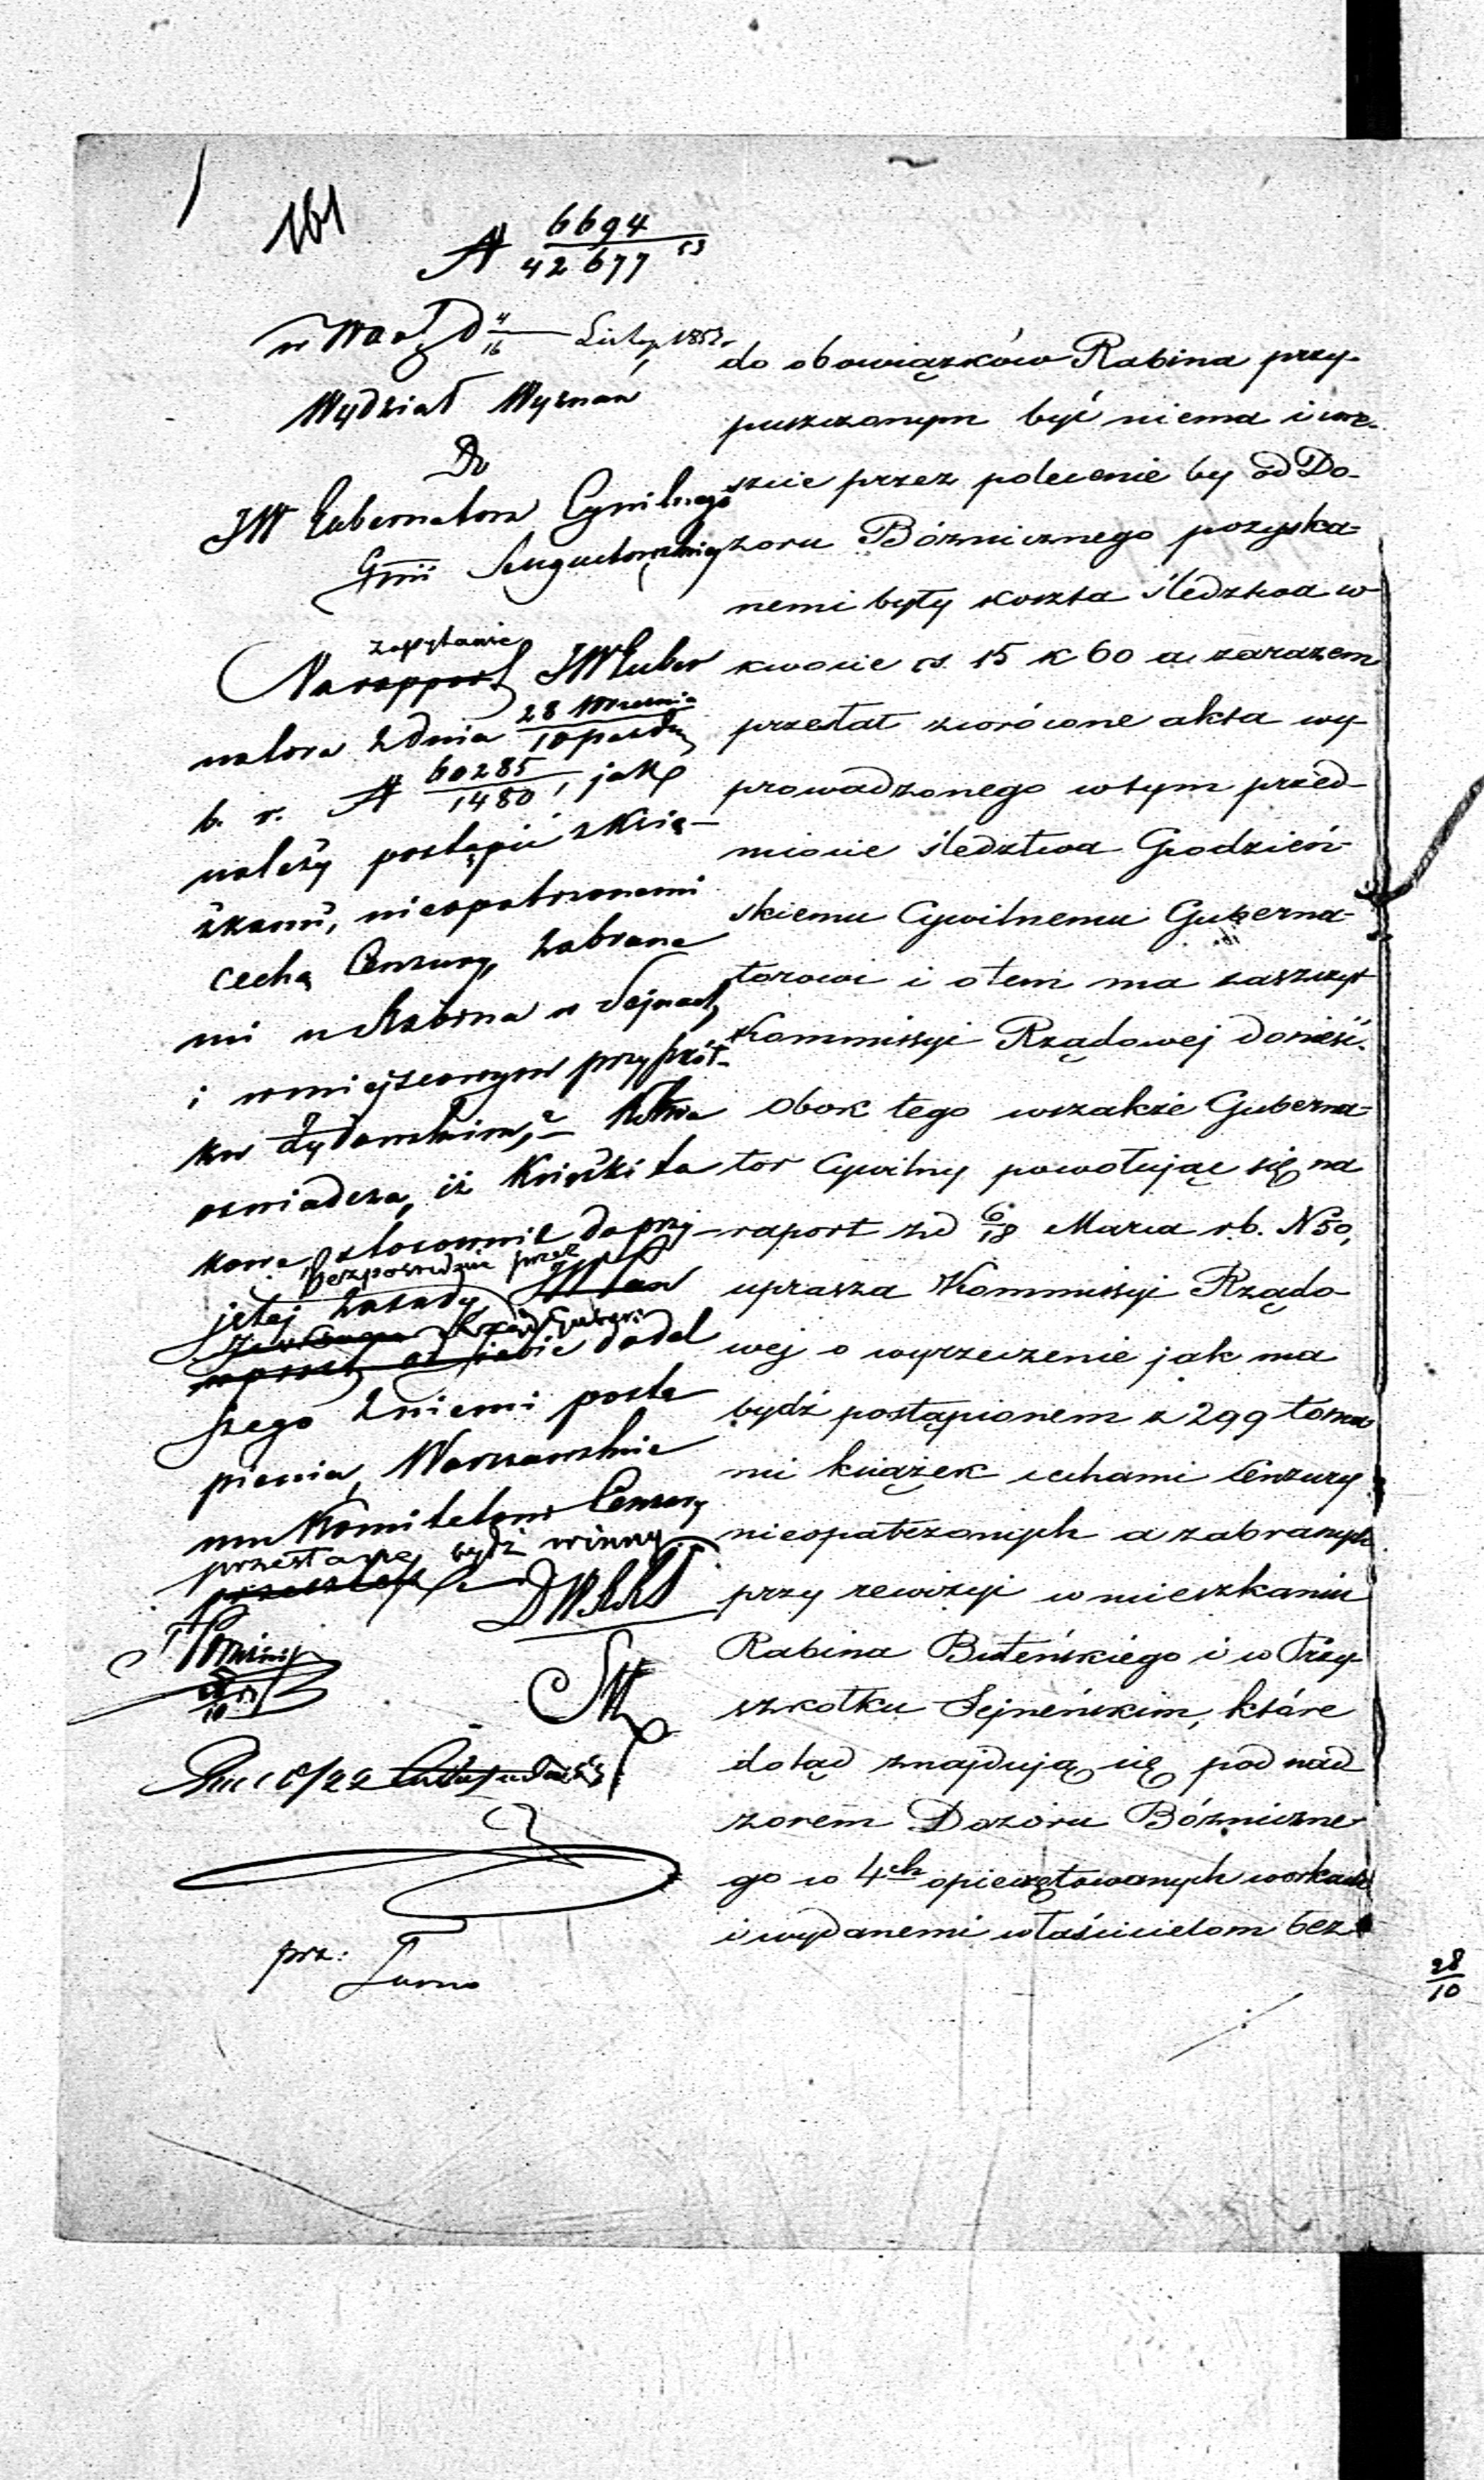 161
№ 6694/42677 53
w War. D 4/16 Listop. 1853 r.
Wydział Wyznań
Do
JW Gubernatora Cywilnego
Gubnii Augustowskiej
zapytanie
Na rapport JW Guber
natora z dnia 28 Września/10 Paźdz
b. r. № 60285/1480, jak
należy postąpić z Ksią-
żkami, nieopatrzonemi
cechą Cenzury, zabrane
mi u Rabina w Sejnach,
i w miejscowym przyszkół-
ku Żydowskim, Kom
oświadcza, iż Książki ta
kowe, stosownie do przy-
bezpośrednio przez
jętej zasady
Rząd Guberni
wprost od siebie do dal
szego z niemi postą
pienia, Warszawskie
mu Komitetowi Cenzury
przesłane, bydź winny
DWRKS
prz: Turno
do obowiązków Rabina przy-
puszczonym być niema i wre-
szcie przez polecenie by od Do-
zoru Bóżnicznego pozyska-
nemi były koszta śledztwa w
kwocie rs. 15 k 60 a zarazem
przesłał zwrócone akta wy-
prowadzonego w tym przed-
miocie śledztwa Grodzień-
skiemu Cywilnemu Guberna-
torowi i o tem ma zaszczyt
Kommissyi Rządowej donieść.
Obok tego wszakże Guberna-
tor Cywilny powołując się na
raport z d 6/18 Marca r.b. N 50,
uprasza Kommissyi Rządo-
wej o wyrzeczenie jak ma
bydź postąpionem z 299 toma-
mi książek cechami Cenzury
nieopatrzonych a zabranych
przy rewizyi w mieszkaniu
Rabina Buteńskiego i w Przy-
szkołku Sejneńskim, które
dotąd znajdują się pod nad
zorem Dozoru Bóżniczne-
go w 4ch opieczętowanych workach
i wydanemi właścicielom bez
28/10